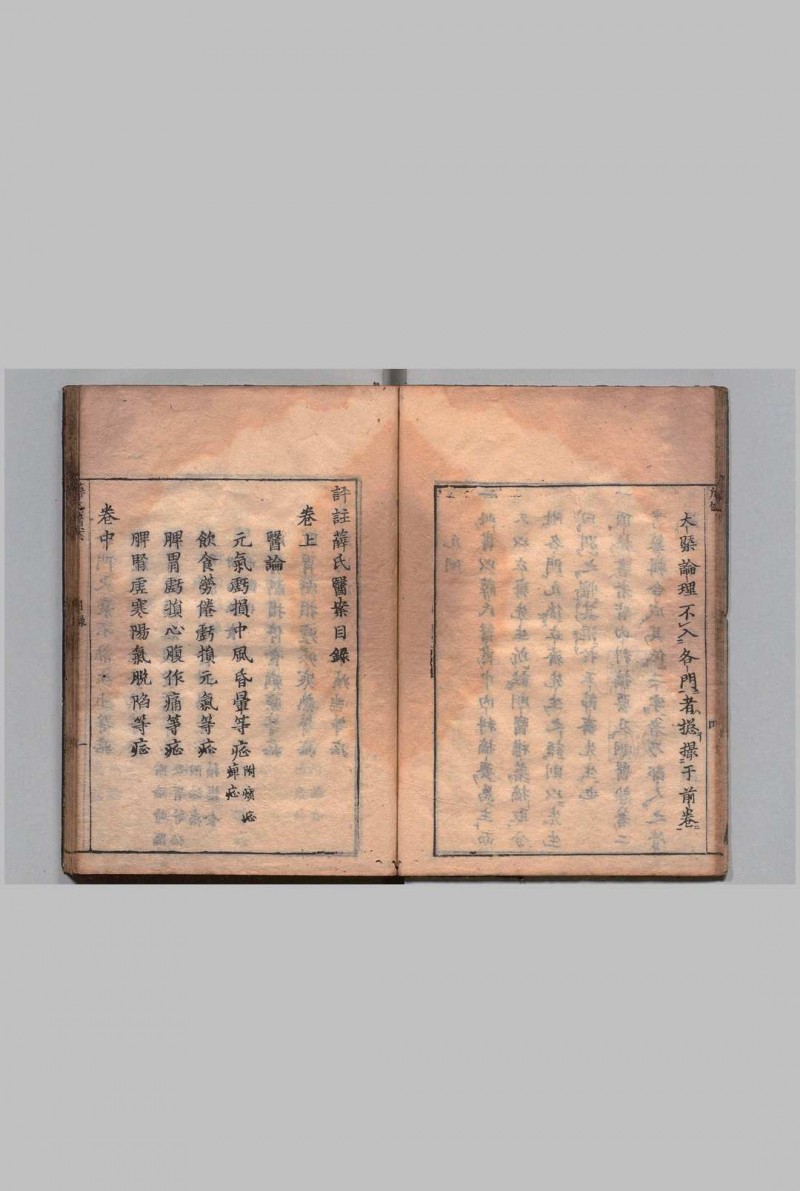 大槩論理不入各門者揔採于前卷
評註薛氏醫案目錄
卷上
醫論
元氣虧損中風昏暈等症 附㿗症 癉症
飲食勞倦虧損元氣等症
脾胃虧損心腹作痛等症
脾腎虗寒陽氣脫陷等症
卷中
一